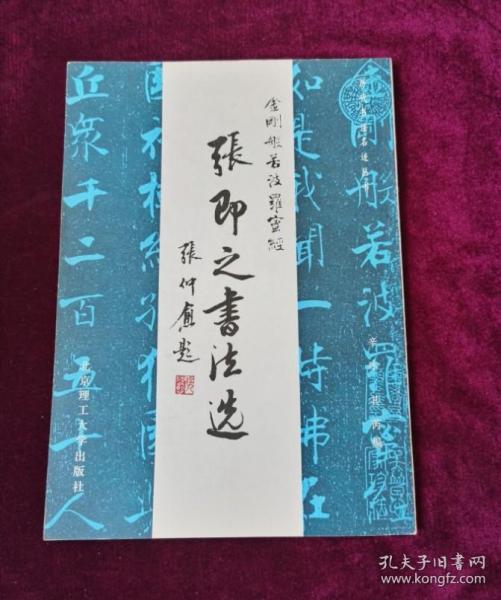 金剛般若波羅蜜經
張即之书法选
張仲愈題
北京理工大学出版社
金剛般若波羅蜜
如是我聞一時佛在
丘衆千二百五十人
孔夫子旧书网
www.kongfz.com